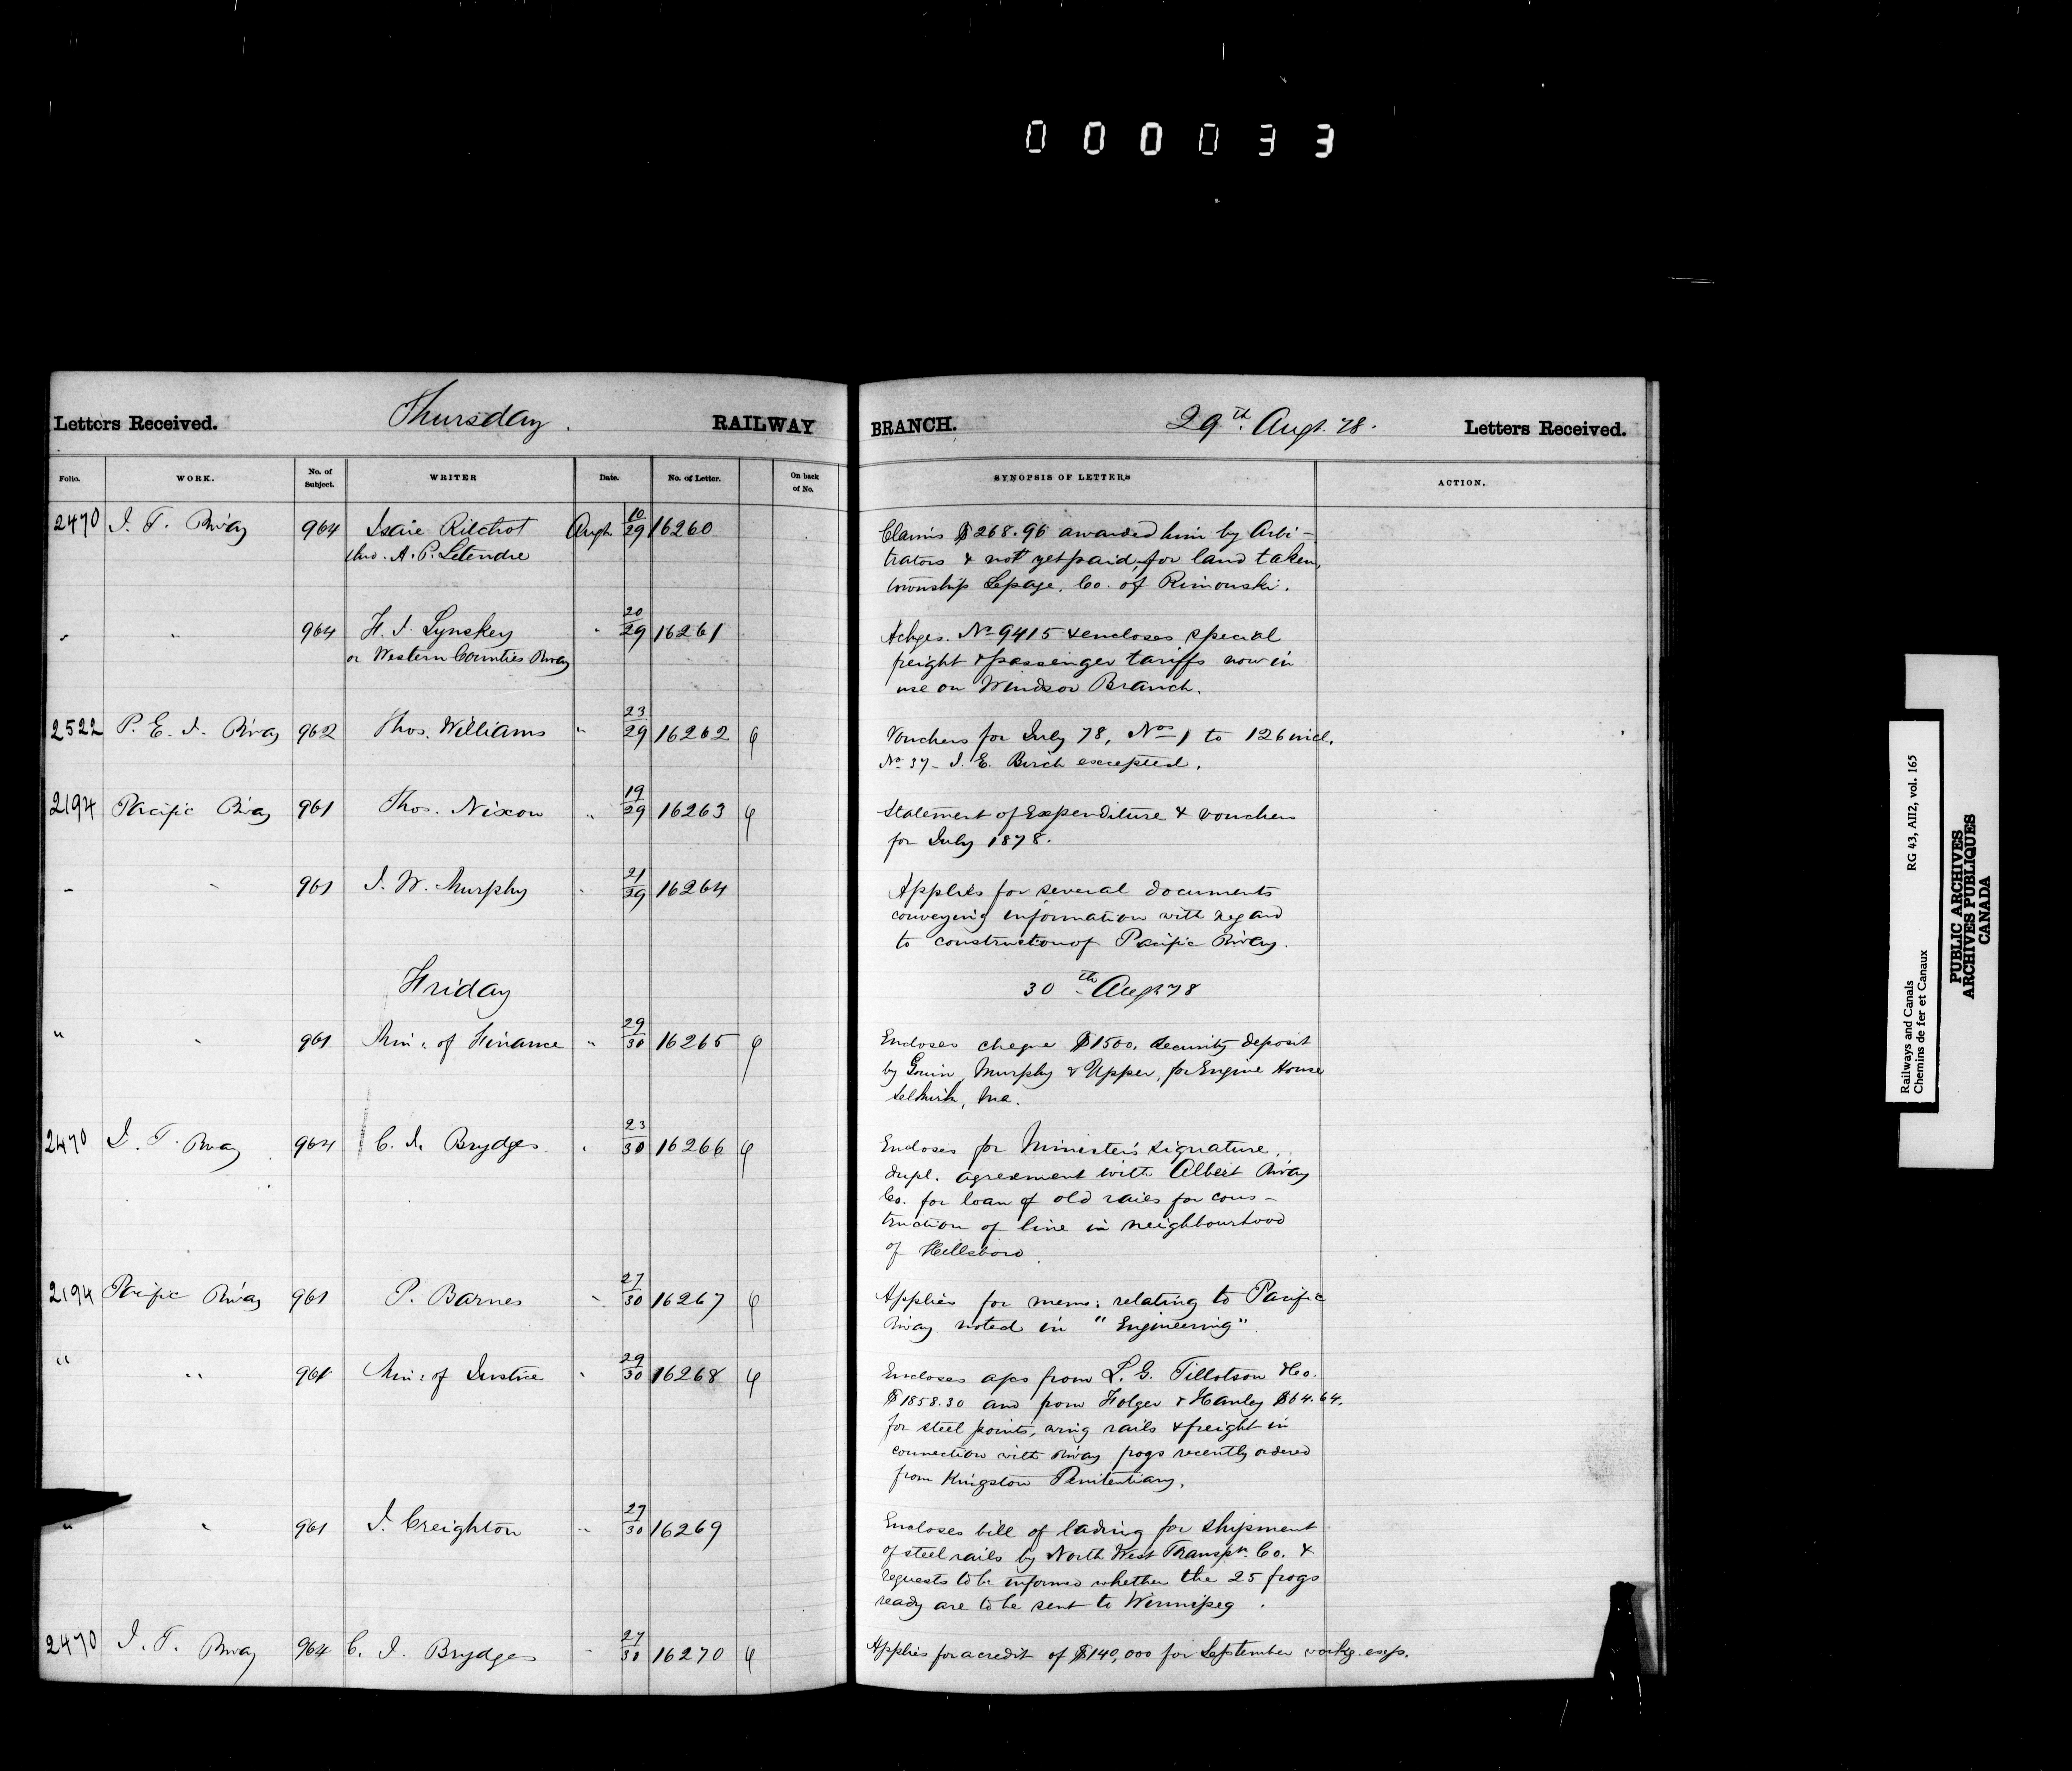 000033
Letters Received. Thursday. RAILWAY BRANCH. 29th Augt. 78. Letters Received.
Folio. WORK. No. of Subject. WRITER Date. No. of Letter. On back of No. SYNOPSIS OF LETTERS ACTION.
2470 I. T. Rway 964 Isaie Augt 10/29 16260 Claims $268.96 awarded him by Arbi-
thro. A. P. Letendre trators & not yet paid, for land taken,
township Lepage, Co. of Rimouski.
" " 964 H. J. Lynskey " 20/29 16261 Ackges. No 9415 & encloses special
or Western Counties Rway freight & passenger tariffs now in
use on Windsor Branch.
2522 P. E. I. Rway 962 Thos. Williams " 23/29 16262 φ Vouchers for July 78, Nos 1 to 126 incl.
No 37 - J. E. Birch excepted.
2194 Pacific Rway 961 Thos. Nixon " 19/29 16263 φ Statement of Expenditure & vouchers
for July 1878.
" " 961 J. W. Murphy " 21/29 16264 Applies for several documents
conveying information with regard
to construction of Pacific Rway.
Friday 30th Augt 78
" " 961 Min: of Finance " 29/30 16265 φ Encloses cheque $1500. security deposit
by Murphy & Upper, for Engine House
Selkirk, Ma.
2470 I. T. Rway 964 C. J. Brydges " 23/30 16266 φ Encloses for Minister's signature,
dupl. agreement with Albert Rway
Co. for loan of old rails for cons-
truction of line in neighbourhood
of Hillsboro.
2194 Pacific Rway 961 P. Barnes " 27/30 16267 φ Applies for memo: relating to Pacific
Rway noted in "Engineering"
" " 961 Min: of Justice " 29/30 16268 φ Encloses a/cs from L. G. Tillotson & Co.
$1858.30 and from Folger & Hanley $64.64,
for steel points, wing rails & freight in
connection with Rway frogs recently ordered
from Kingston Penitentiary.
" " 961 J. Creighton " 27/30 16269 Encloses bill of lading for shipment
of steel rails by North West Transpn. Co. &
requests to be informed whether the 25 frogs
ready are to be sent to Winnipeg.
2470 I. T. Rway 964 C. J. Brydges " 27/30 16270 φ Applies for a credit of $140,000 for September workg. exps.
Railways and Canals RG 43, AII2, vol. 165
Chemins de fer et Canaux
PUBLIC ARCHIVES
ARCHIVES PUBLIQUES
CANADA